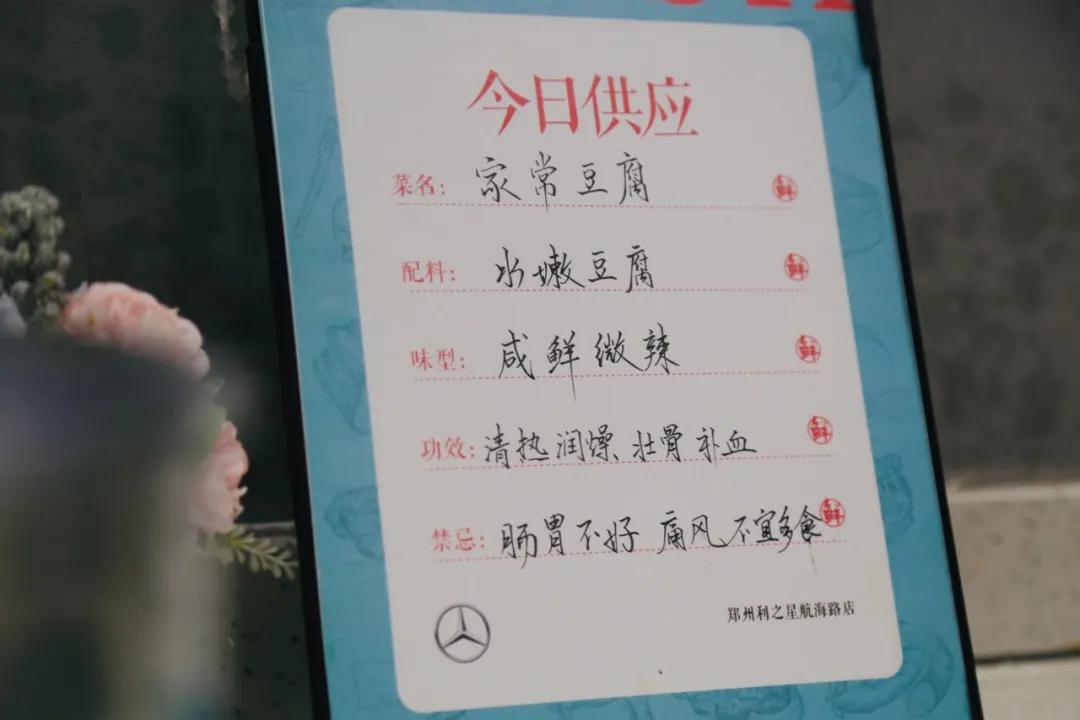 今日供应
菜名：家常豆腐
配料：水嫩豆腐
味型：咸鲜微辣
功效：清热润燥 壮骨补血
禁忌：肠胃不好 痛风不宜多食
郑州利之星航海路店